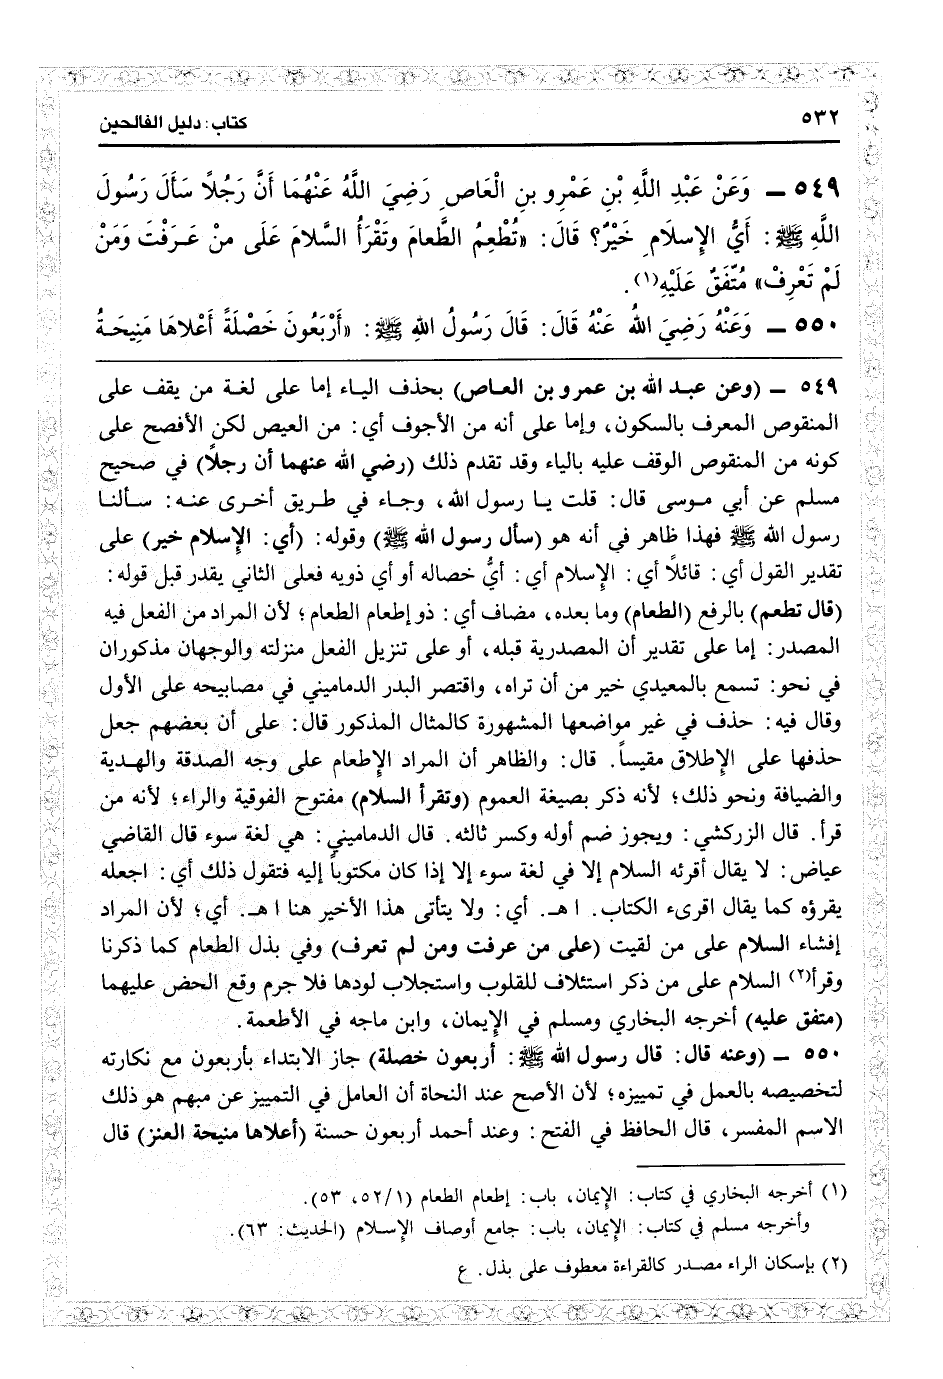 ٥٣٢
كتاب: دليل الفالحين
٥٤٩ ـ وَعَنْ عَبْدِ اللَّهِ بْنِ عَمْرِو بنِ الْعَاصِ رَضِيَ اللَّهُ عَنْهُمَا أَنَّ رَجُلاً سَأَلَ رَسُولَ
اللَّهِ ﷺ: أَيُّ الإِسلَامِ خَيْرٌ؟ قَالَ: «تُطْعِمُ الطَّعامَ وتَقْرَأُ السَّلامَ عَلَى منْ عَرَفْتَ وَمَنْ
لَمْ تَعْرِفْ» مُتَّفَقٌ عَلَيْهِ(١).
٥٥٠ ـ وَعَنْهُ رَضِيَ اللهُ عَنْهُ قَالَ: قَالَ رَسُولُ اللهِ ﷺ: «أَرْبَعُونَ خَصْلَةً أَعْلاهَا مَنِيحَةُ
٥٤٩ ـ (وعن عبد الله بن عمرو بن العاص) بحذف الياء إما على لغة من يقف على
المنقوص المعرف بالسكون، وإما على أنه من الأجوف أي: من العيص لكن الأفصح على
كونه من المنقوص الوقف عليه بالياء وقد تقدم ذلك (رضي الله عنهما أن رجلاً) في صحيح
مسلم عن أبي موسى قال: قلت يا رسول الله، وجاء في طريق أخرى عنه: سألنا
رسول الله ﷺ فهذا ظاهر في أنه هو (سأل رسول الله ﷺ) وقوله: (أي: الإسلام خير) على
تقدير القول أي: قائلاً أي: الإِسلام أي: أيُّ خصاله أو أي ذويه فعلى الثاني يقدر قبل قوله:
(قال تطعم) بالرفع (الطعام) وما بعده، مضاف أي: ذو إطعام الطعام؛ لأن المراد من الفعل فيه
المصدر: إما على تقدير أن المصدرية قبله، أو على تنزيل الفعل منزلته والوجهان مذكوران
في نحو: تسمع بالمعيدي خير من أن تراه، واقتصر البدر الدماميني في مصابيحه على الأول
وقال فيه: حذف في غير مواضعها المشهورة كالمثال المذكور قال: على أن بعضهم جعل
حذفها على الإِطلاق مقيساً. قال: والظاهر أن المراد الإِطعام على وجه الصدقة والهدية
والضيافة ونحو ذلك؛ لأنه ذكر بصيغة العموم (وتقرأ السلام) مفتوح الفوقية والراء؛ لأنه من
قرأ. قال الزركشي: ويجوز ضم أوله وكسر ثالثه. قال الدماميني: هي لغة سوء قال القاضي
عياض: لا يقال أقرئه السلام إلا في لغة سوء إلا إذا كان مكتوباً إليه فتقول ذلك أي: اجعله
يقرؤه كما يقال اقرىء الكتاب. ا هـ. أي: ولا يتأتى هذا الأخير هنا ا هـ. أي؛ لأن المراد
إفشاء السلام على من لقيت (على من عرفت ومن لم تعرف) وفي بذل الطعام كما ذكرنا
وقرأ(٢) السلام على من ذكر استئلاف للقلوب واستجلاب لودها فلا جرم وقع الحض عليهما
(متفق عليه) أخرجه البخاري ومسلم في الإِيمان، وابن ماجه في الأطعمة.
٥٥٠ ـ (وعنه قال: قال رسول الله ﷺ: أربعون خصلة) جاز الابتداء بأربعون مع نكارته
لتخصيصه بالعمل في تمييزه؛ لأن الأصح عند النحاة أن العامل في التمييز عن مبهم هو ذلك
الاسم المفسر، قال الحافظ في الفتح: وعند أحمد أربعون حسنة (أعلاها منيحة العنز) قال
(١) أخرجه البخاري في كتاب: الإيمان، باب: إطعام الطعام (٥٢/١، ٥٣).
وأخرجه مسلم في كتاب: الإيمان، باب: جامع أوصاف الإسلام (الحديث: ٦٣).
(٢) بإسكان الراء مصدر كالقراءة معطوف على بذل. ع